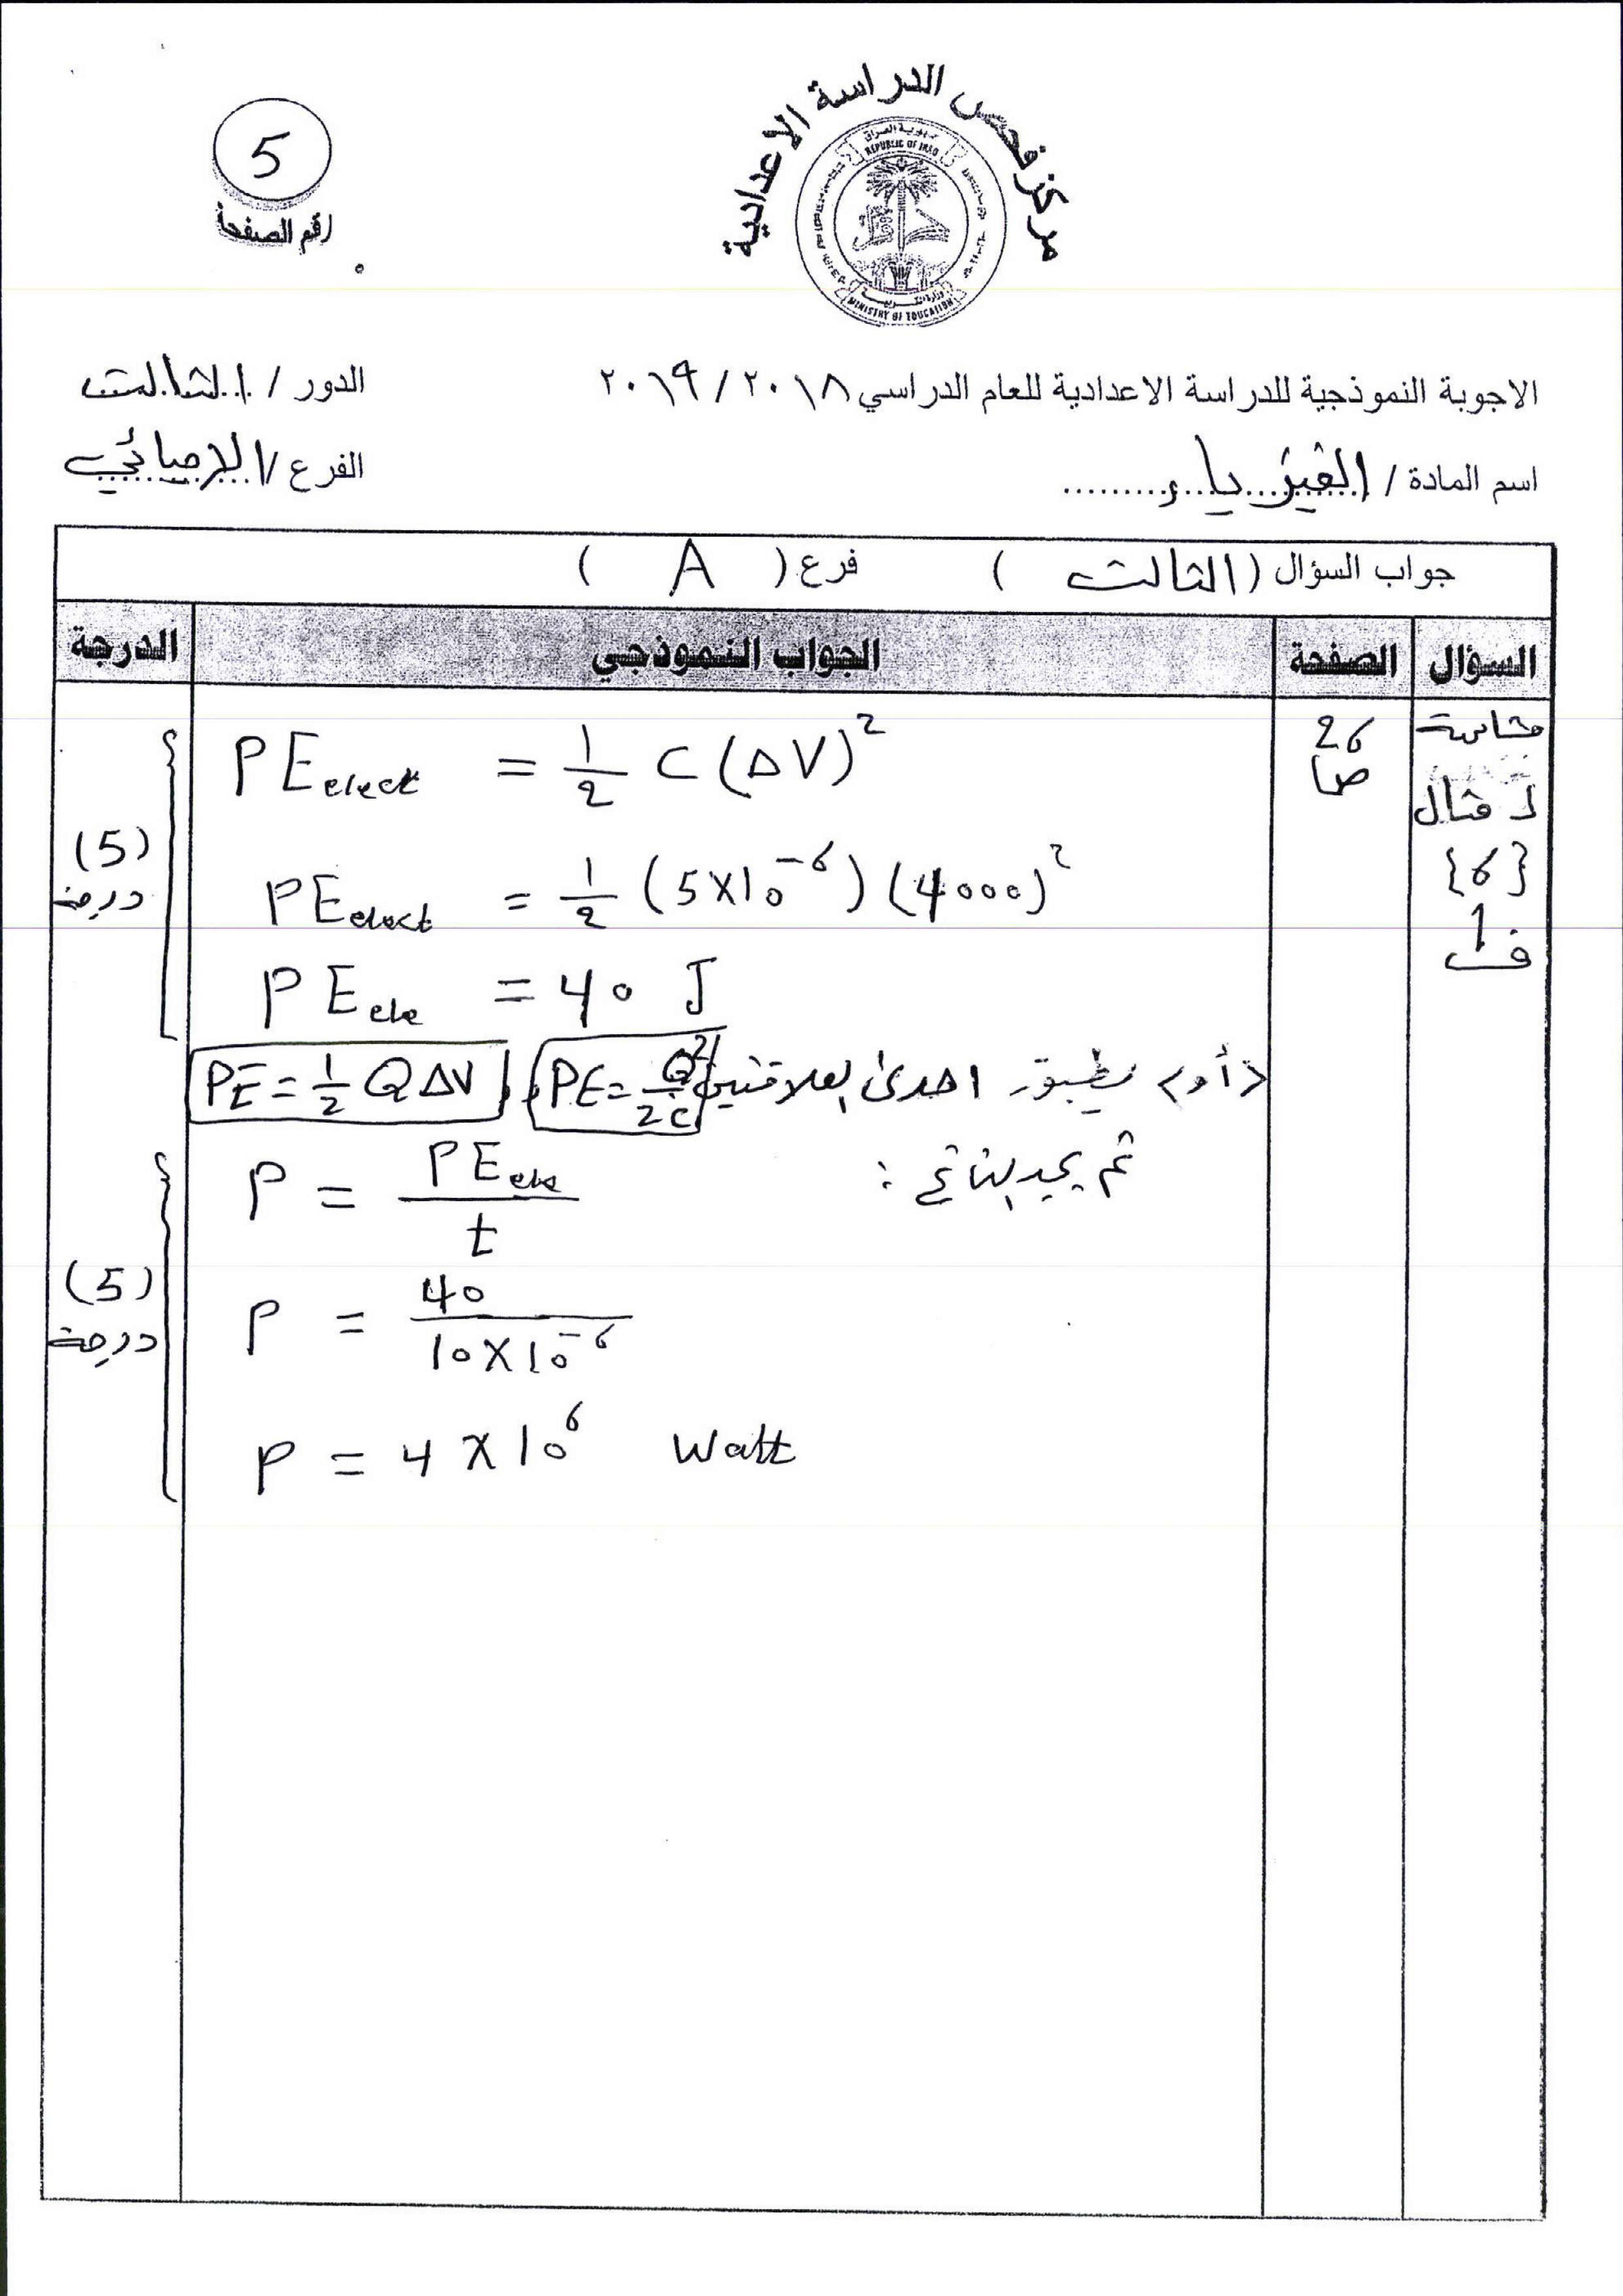 مركز فحص الدراسة الاعدادية
جمهورية العراق
REPUBLIC OF IRAQ
وزارة التربية
MINISTRY OF EDUCATION
5
رقم الصفحة
الاجوبة النموذجية للدراسة الاعدادية للعام الدراسي ٢٠١٨ / ٢٠١٩
الدور / الثالث
اسم المادة / الفيزياء
الفرع / الاحيائي
جواب السؤال ( الثالث ) فرع ( A )
السؤال الصفحة الجواب النموذجي الدرجة
مشابه
لمثال
{6}
ف 1
26
ص
PE elect = 1/2 C (ΔV)²
PE elect = 1/2 (5×10⁻⁶) (4000)²
PE ele = 40 J
(5)
درجة
<أو> يطبق احدى العلاقتين PE = Q²/2C , PE = 1/2 Q ΔV
ثم يجد الناتج :
P = PE ele / t
P = 40 / 10×10⁻⁶
P = 4 × 10⁶ Watt
(5)
درجة